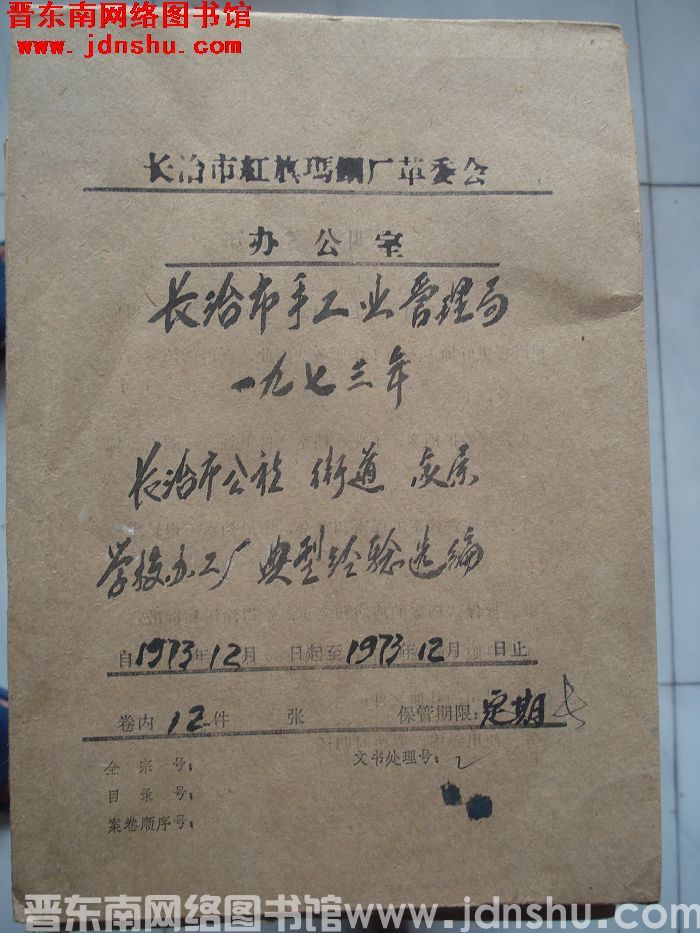 晋东南网络图书馆
www.jdnshu.com
长治市红旗玛钢厂革委会
办公室
长治市手工业管理局
一九七三年
长治市公社 街道 家属
学校办工厂 典型经验选编
自1973年12月 日起至1973年12月 日止
卷内12件 张 保管期限:定期 长
全宗号: 文书处理号:2
目录号:
案卷顺序号:
晋东南网络图书馆www.jdnshu.com